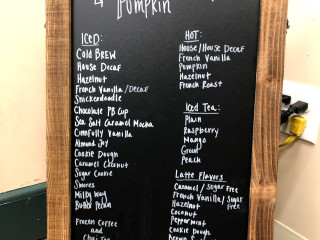 Pumpkin
ICED:
Cold BREW
House Decaf
Hazelnut
French Vanilla/Decaf
Snickerdoodle
Chocolate PB Cup
Sea Salt Caramel Mocha
Cinnfully Vanilla
Almond Joy
Cookie Dough
Caramel Coconut
Sugar Cookie
S'mores
Milky Way
Butter Pecan
Frozen Coffee
and
Chai Tea
HOT:
House/House Decaf
French Vanilla
Pumpkin
Hazelnut
French Roast
Iced Tea:
Plain
Raspberry
Mango
Green
Peach
Latte Flavors
Caramel/Sugar Free
French Vanilla/Sugar Free
Hazelnut
Coconut
Peppermint
Cookie Dough
Brown